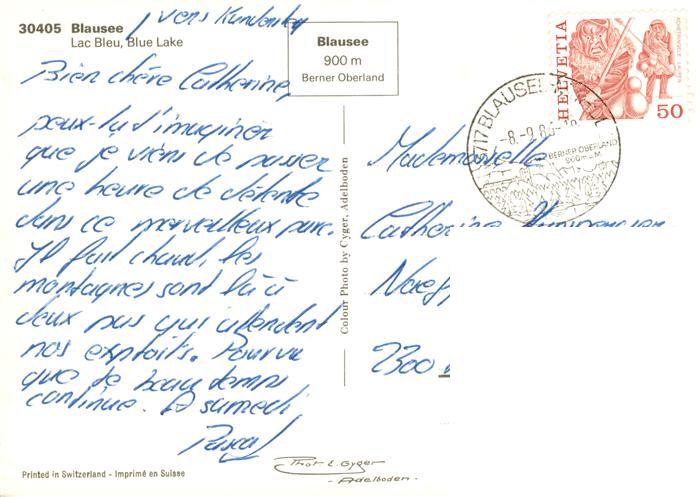 30405 Blausee
Lac Bleu, Blue Lake
vers Kandersteg
Blausee
900 m
Berner Oberland
HELVETIA
50
BLAUSEE
-8.-9.86
BERNER OBERLAND
900 m ü. M.
Bien chère Catherine,
peux-tu t'imaginer
que je viens de passer
une heure de détente
dans ce merveilleux parc.
Il fait chaud, les
montagnes sont là à
deux pas qui attendent
nos exploits. Pourvu
que le beau temps
continue. A samedi
Pascal
Colour Photo by Gyger, Adelboden
Mademoiselle
Catherine
2300
Printed in Switzerland - Imprimé en Suisse
Phot E. Gyger
- Adelboden -